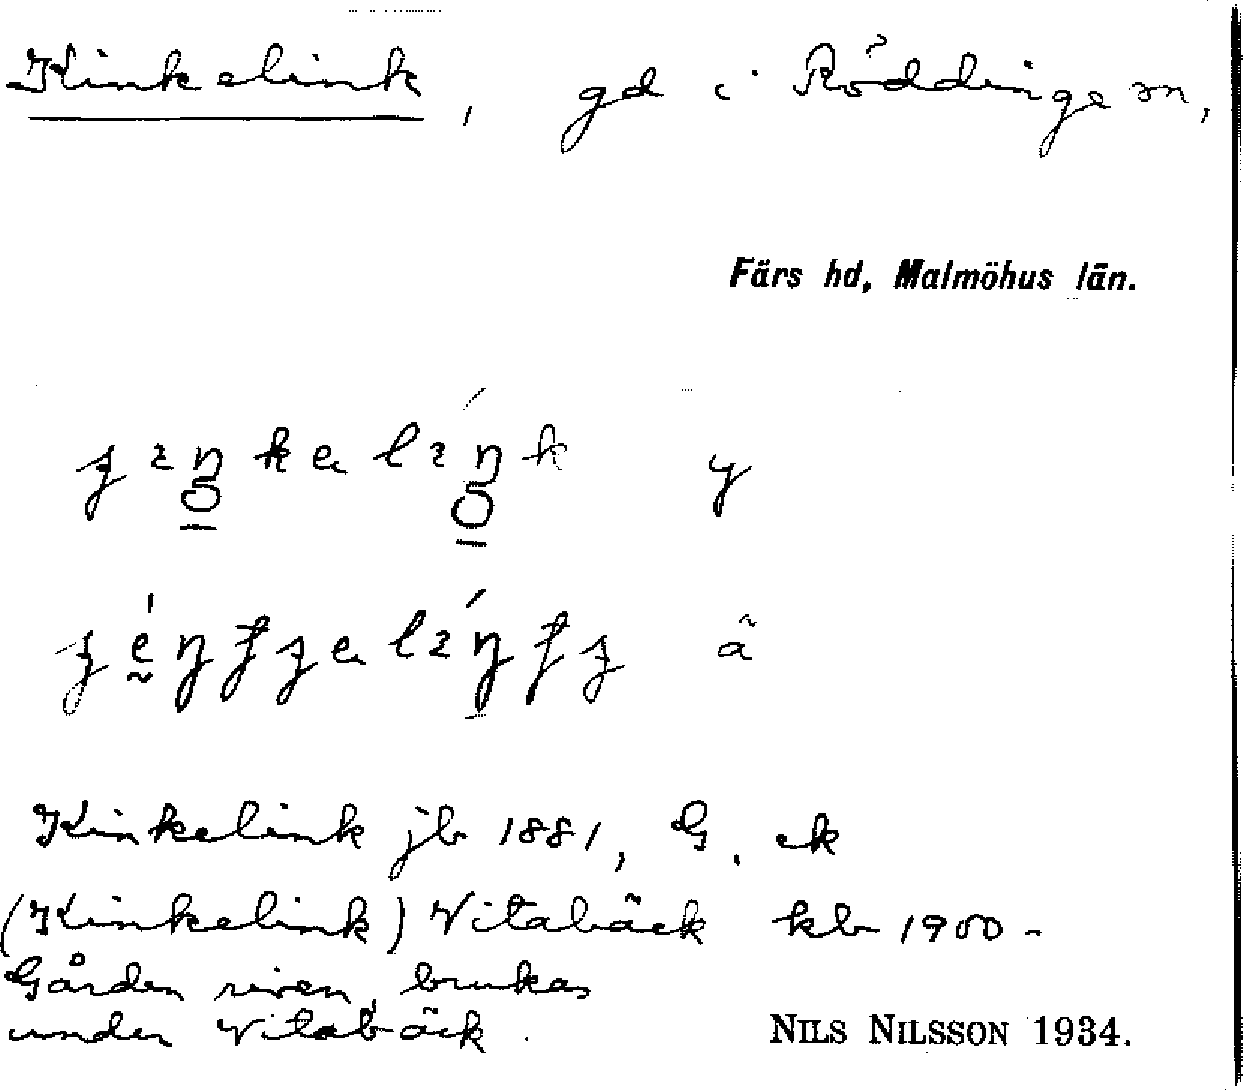 Kinkelink, gd i Röddinge sn,
Färs hd, Malmöhus län.
y
ä
Kinkelink jb 1881, G. ek
(Kinkelink) Vitabäck kb 1900-
Gården riven, brukas
under Vitabäck.
NILS NILSSON 1934.